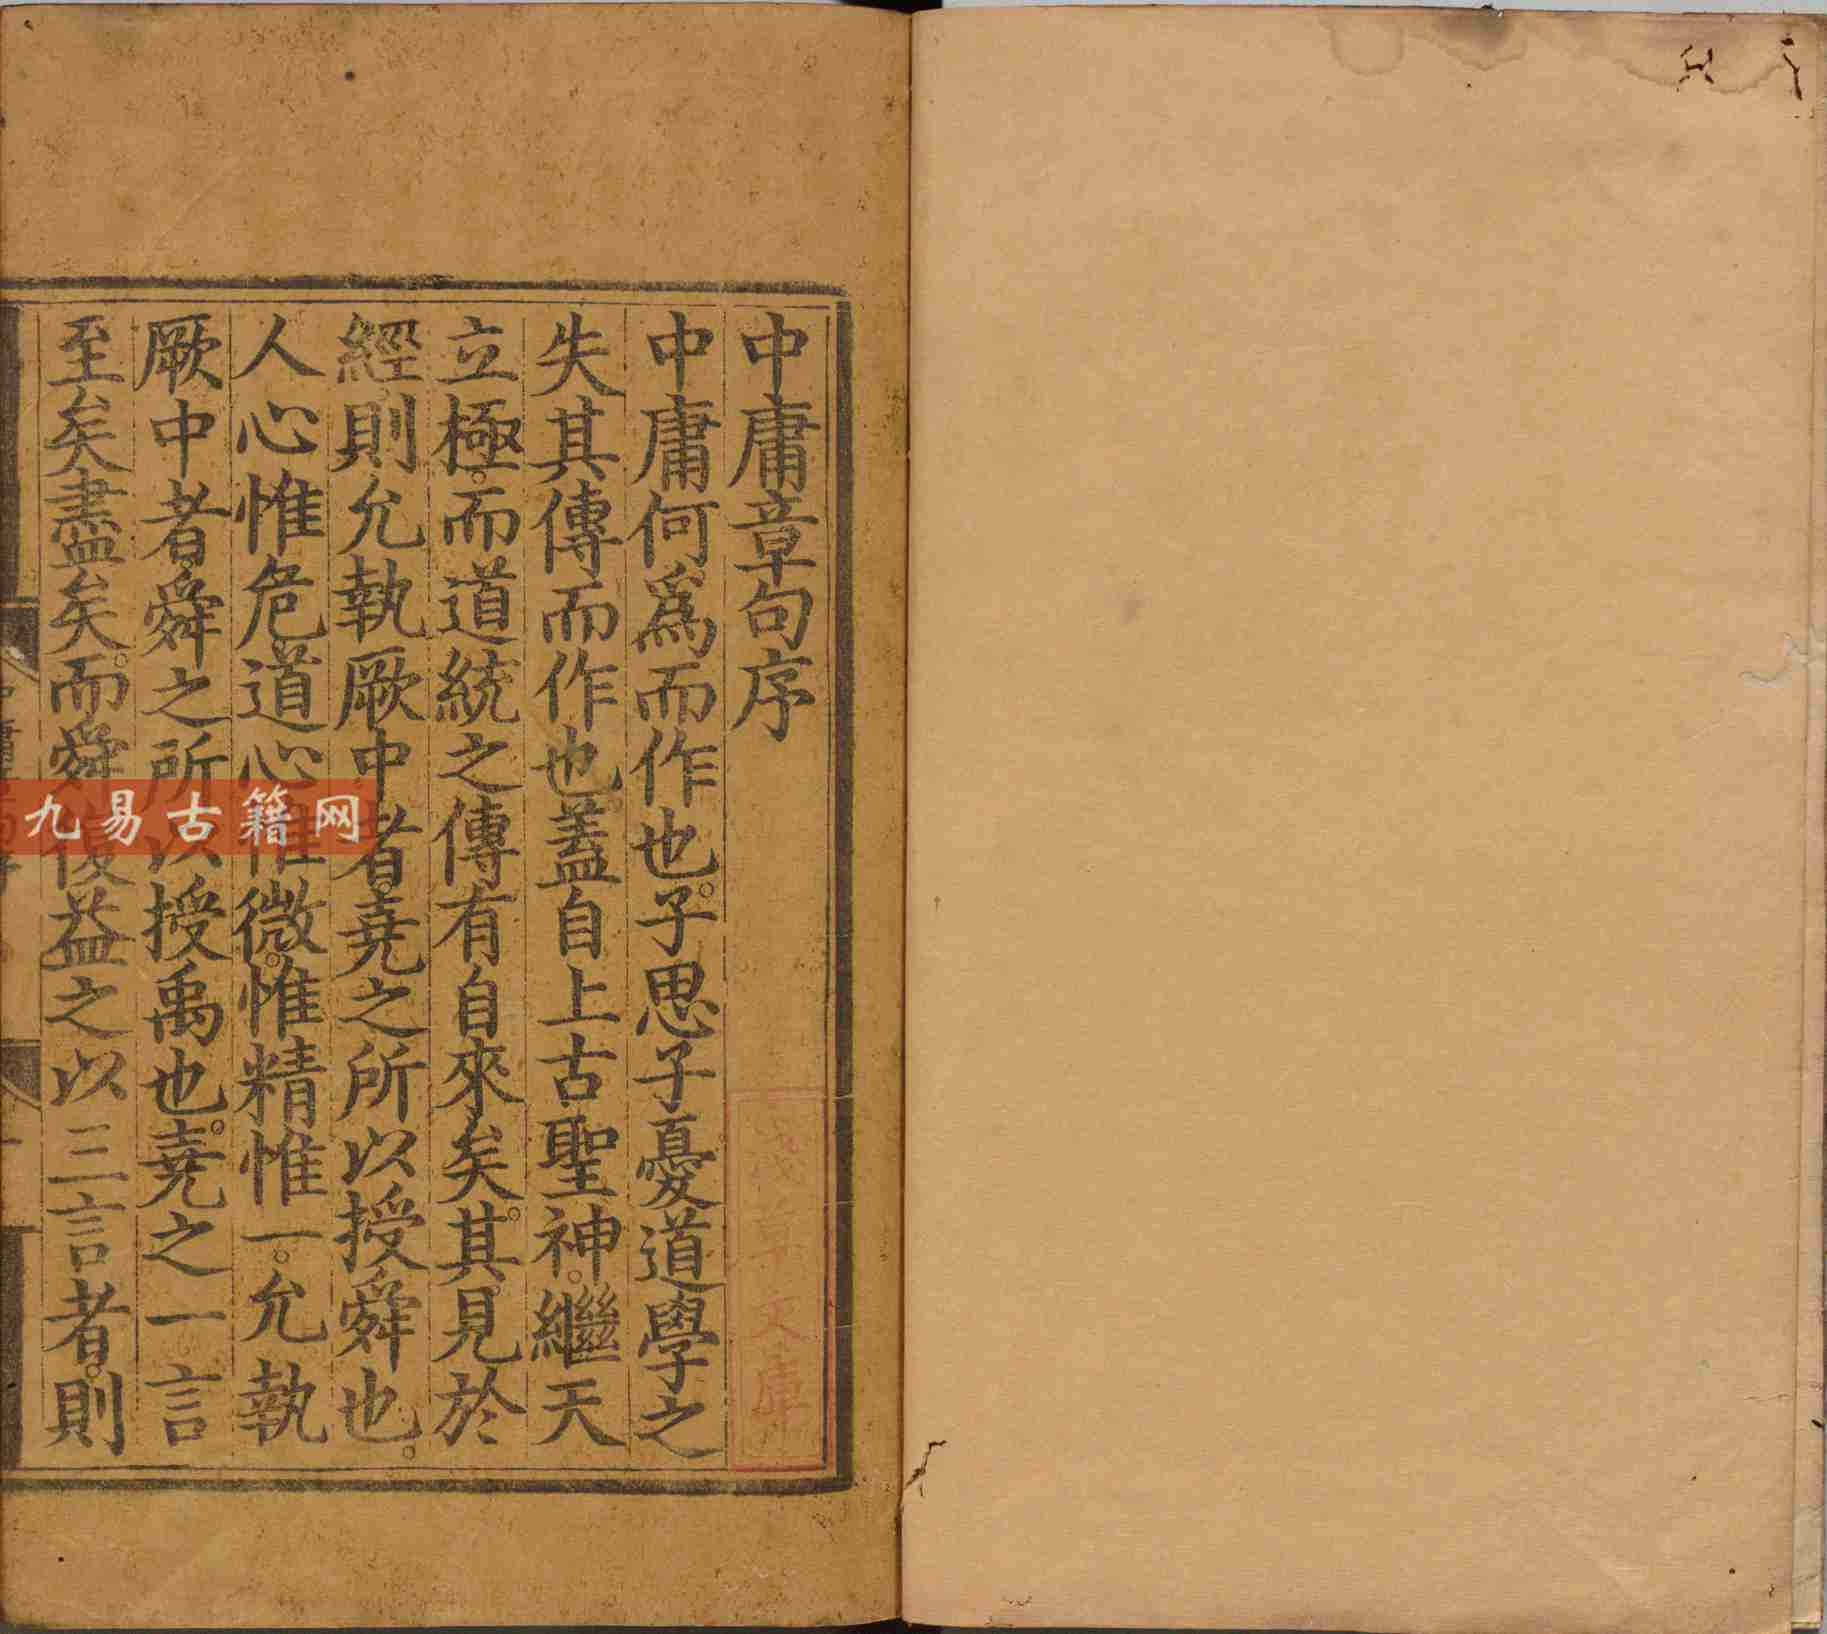 中庸章句序
中庸何爲而作也。子思子憂道學之
失其傳而作也。蓋自上古聖神。繼天
立極。而道統之傳有自來矣。其見於
經則允執厥中者。堯之所以授舜也。
人心惟危道心惟微。惟精惟一。允執
厥中者。舜之所以授禹也。堯之一言
至矣盡矣。而舜復益之以三言者。則
九易古籍网
文庫